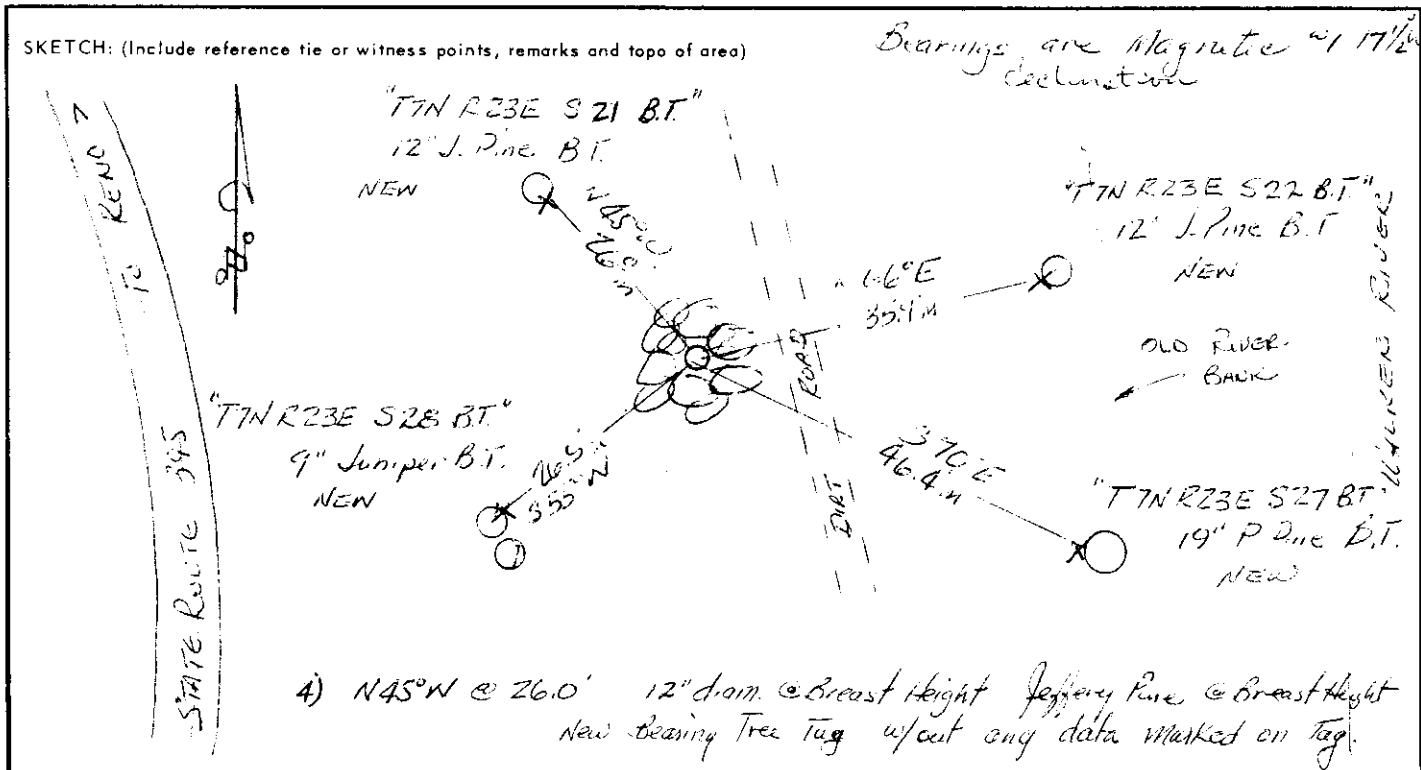 SKETCH: (Include reference tie or witness points, remarks and topo of area)
Bearings are Magnetic w/ 17½°
declination
"T7N R23E S21 B.T."
12" J. Pine B.T.
NEW
TO RENO
N45°
26.0'
"T7N R23E S22 B.T."
12" J. Pine B.T
NEW
66°E
35.4 M
OLD RIVER
BANK
WALKER RIVER
"T7N R23E S28 B.T."
9" Juniper B.T.
NEW
DIRT ROAD
S70°E
46.4 M
"T7N R23E S27 B.T"
19" P Pine B.T.
NEW
STATE ROUTE 395
4) N45°W @ 26.0' 12" diam. @ Breast Height Jeffery Pine @ Breast Height
New Bearing Tree Tag w/out any data marked on Tag.